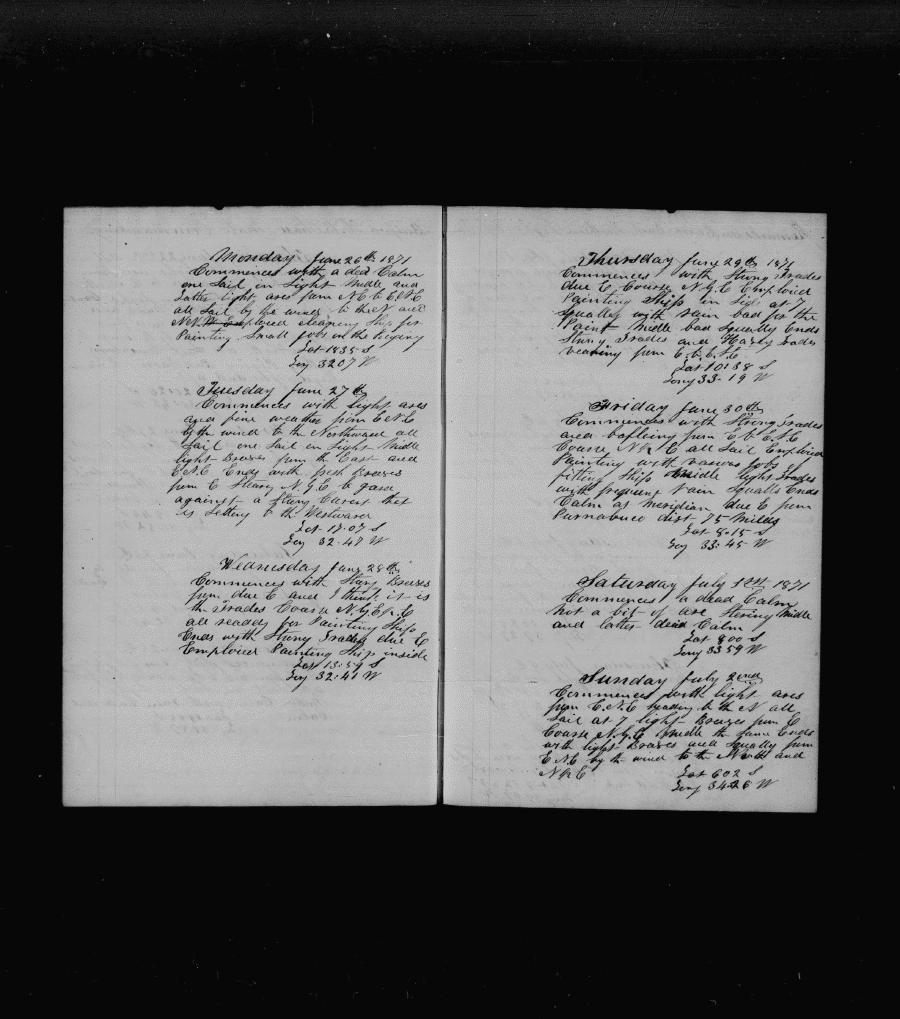 Monday June 26th 1871
Commences with a dead Calm
one Sail in Sight Middle and
Latter light ares from N.E. to E.N.E
all Sail by the wind to the N and
N.N.W Employed cleaning Ship for
Painting. Small jobs in the Rigging
Lat 18 35 S
Long 32 07 W
Tuesday June 27th
Commences with light ares
and fine weather from E.N.E
by the wind to the Northward all
Sail one Sail in Sight Middle
light Breezes from the East and
E.N.E Ends with fresh Breezes
from E Stearing N.½.E to
against a Strong Current that
is Setting to the Westward
Lat 17.07 S
Long 32.47 W
Wednesday June 28th
Commences with Strong Breezes
from due E and I think it is
the Trades Course N.½.E
all ready for Painting Ship
Ends with Strong Trades due E
Employed Painting Ship inside
Lat 13:59 S
Long 32:41 W
Thursday June 29th 1871
Commences with Strong Trades
due E, Course N.½.E Employed
Painting Ship in Side at 7
Squally with Rain bad for the
Paint Middle bad Squally Ends
Strong Trades and Trades
from
Lat 10:38 S
Long 33.19 W
Friday June 30th
Commences with Strong Trades
and baffleing from E.b.E.½.E
Course N.½.E all Sail Employed
Painting with various jobs of
fitting Ship Middle light Trades
with frequent Rain Squalls Ends
Calm at Meridian due E from
Purnabuco dist 75 Miles
Lat 8.15 S
Long 33.45 W
Saturday July 1st 1871
Commences a dead Calm
Not a bit of are Stering Middle
and latter dead Calm
Lat 8 00 S
Long 33 59 W
Sunday July 2nd
Commences with light ares
from E.N.E heading to the N all
Sail at 7 light Breezes from E
Course N.½.E Middle the Same Ends
with light Breezes and Squally from
E.N.E by the wind to the North and
N.½.E
Lat 6 02 S
Long 34.26 W